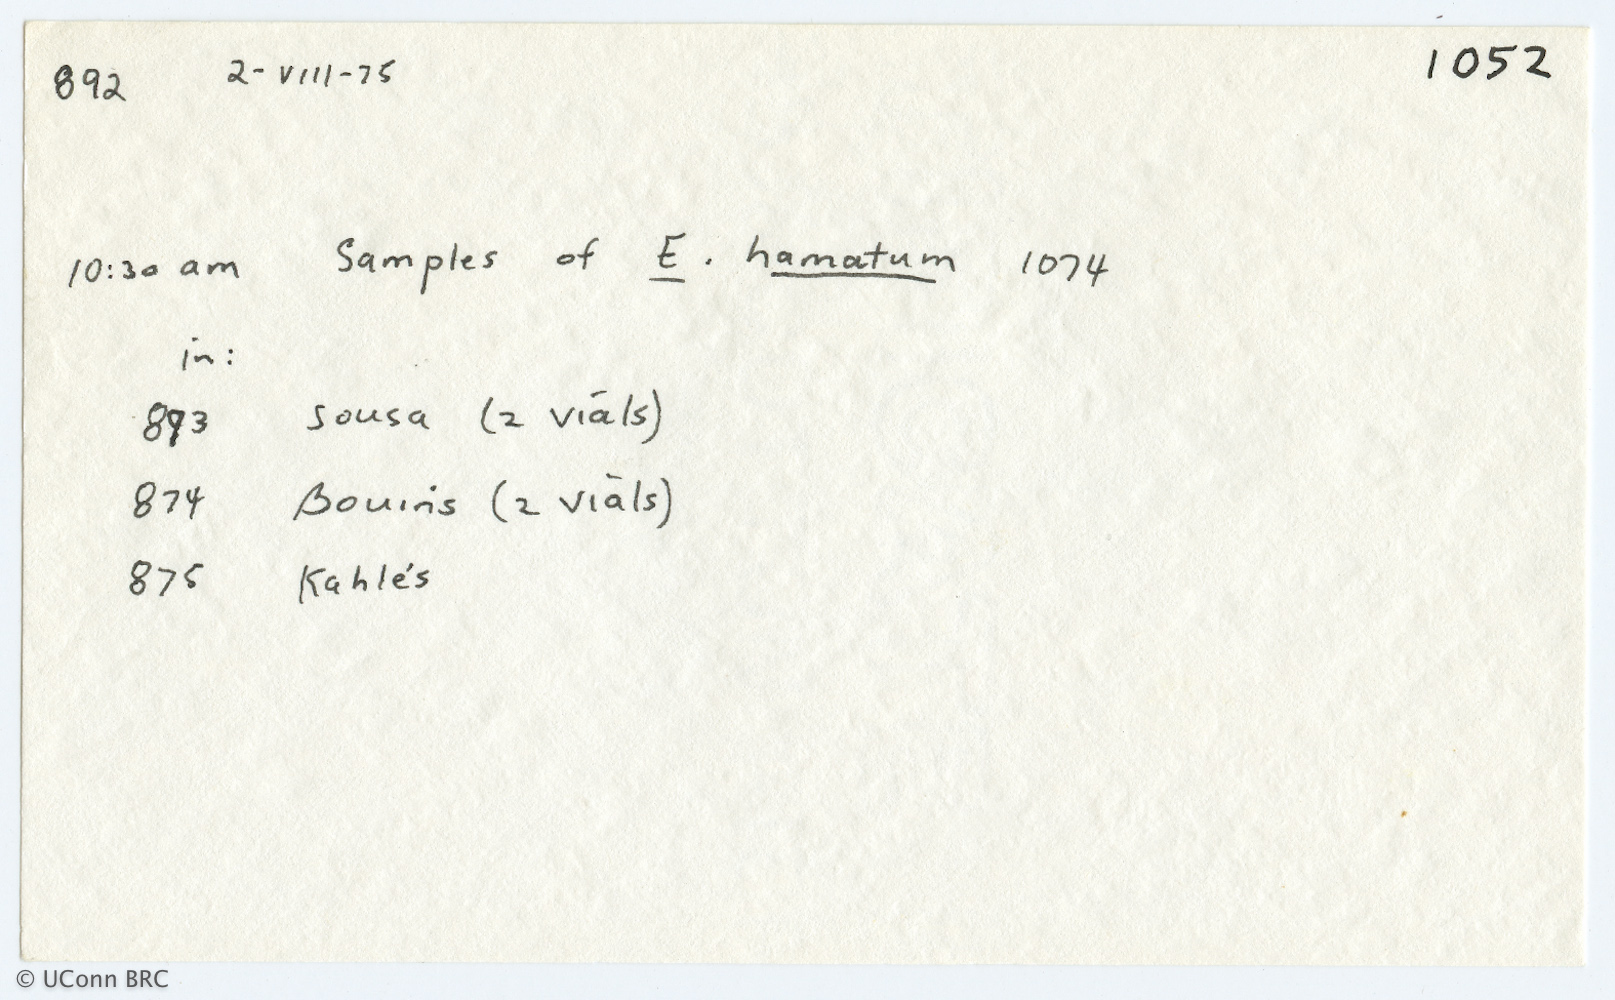 892 2-VIII-75 1052
10:30 am Samples of E. hamatum 1074
in:
893 Sousa (2 vials)
874 Bouins (2 vials)
875 Kahle's
© UConn BRC